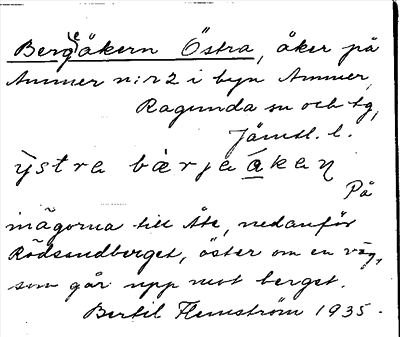 Bergeåkern Östra, åker på
Ammer n:r 2 i byn Ammer,
Ragunda sn och tg,
Jämtl. l.
ỳstra bærjaákaɳ
På
inägorna till Åte, nedanför
Rödsundberget, öster om en väg,
som går upp mot berget.
Bertil Flemström 1935.